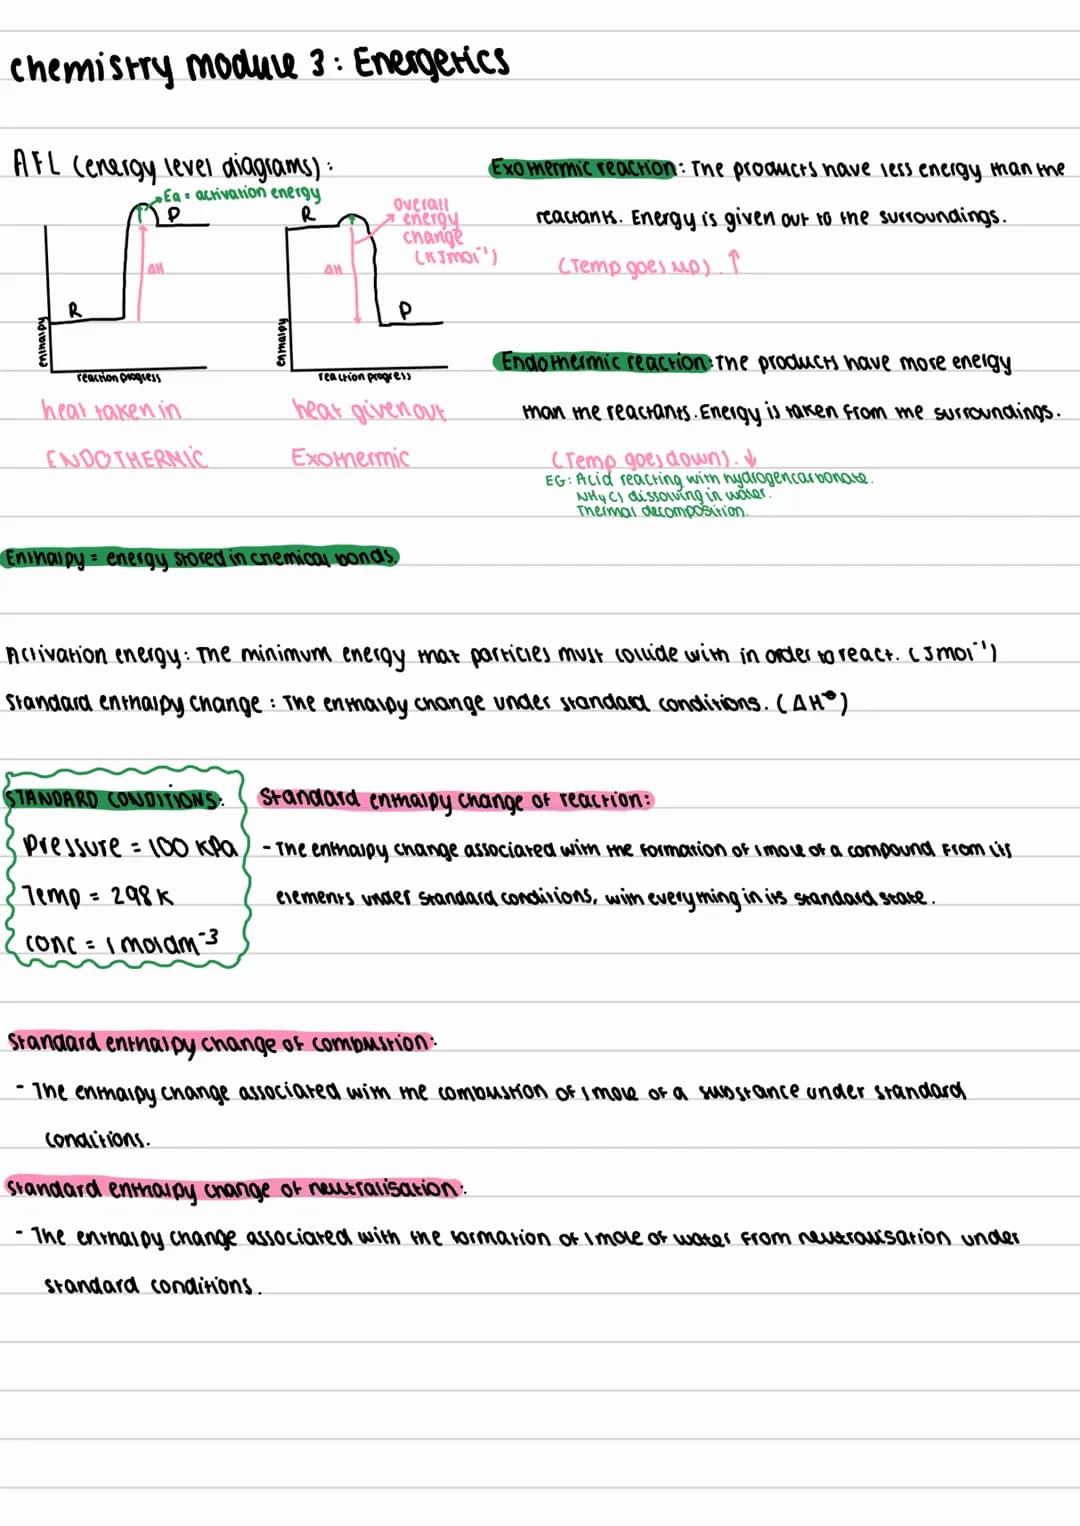 chemistry module 3: Energetics
AFL (energy level diagrams):
Ea = activation energy
P
ΔH
R
enthalpy
reaction progress
heat taken in
ENDOTHERMIC
R
overall
energy
change
(KJmol⁻¹)
ΔH
P
enthalpy
reaction progress
heat given out
Exothermic
Exothermic reaction: The products have less energy than the
reactants. Energy is given out to the surroundings.
(Temp goes up). ↑
Endothermic reaction: The products have more energy
than the reactants. Energy is taken from the surroundings.
(Temp goes down). ↓
EG: Acid reacting with hydrogencarbonate.
NH4Cl dissolving in water.
Thermal decomposition.
Enthalpy = energy stored in chemical bonds.
Activation energy: The minimum energy that particles must collide with in order to react. (Jmol⁻¹)
Standard enthalpy change: The enthalpy change under standard conditions. (ΔH⊖)
STANDARD CONDITIONS:
Pressure = 100 KPa
Temp = 298 K
conc = 1 moldm⁻³
Standard enthalpy change of reaction:
- The enthalpy change associated with the formation of 1 mole of a compound from its
elements under standard conditions, with everything in its standard state.
Standard enthalpy change of combustion:
- The enthalpy change associated with the combustion of 1 mole of a substance under standard
conditions.
Standard enthalpy change of neutralisation:
- The enthalpy change associated with the formation of 1 mole of water from neutralisation under
standard conditions.